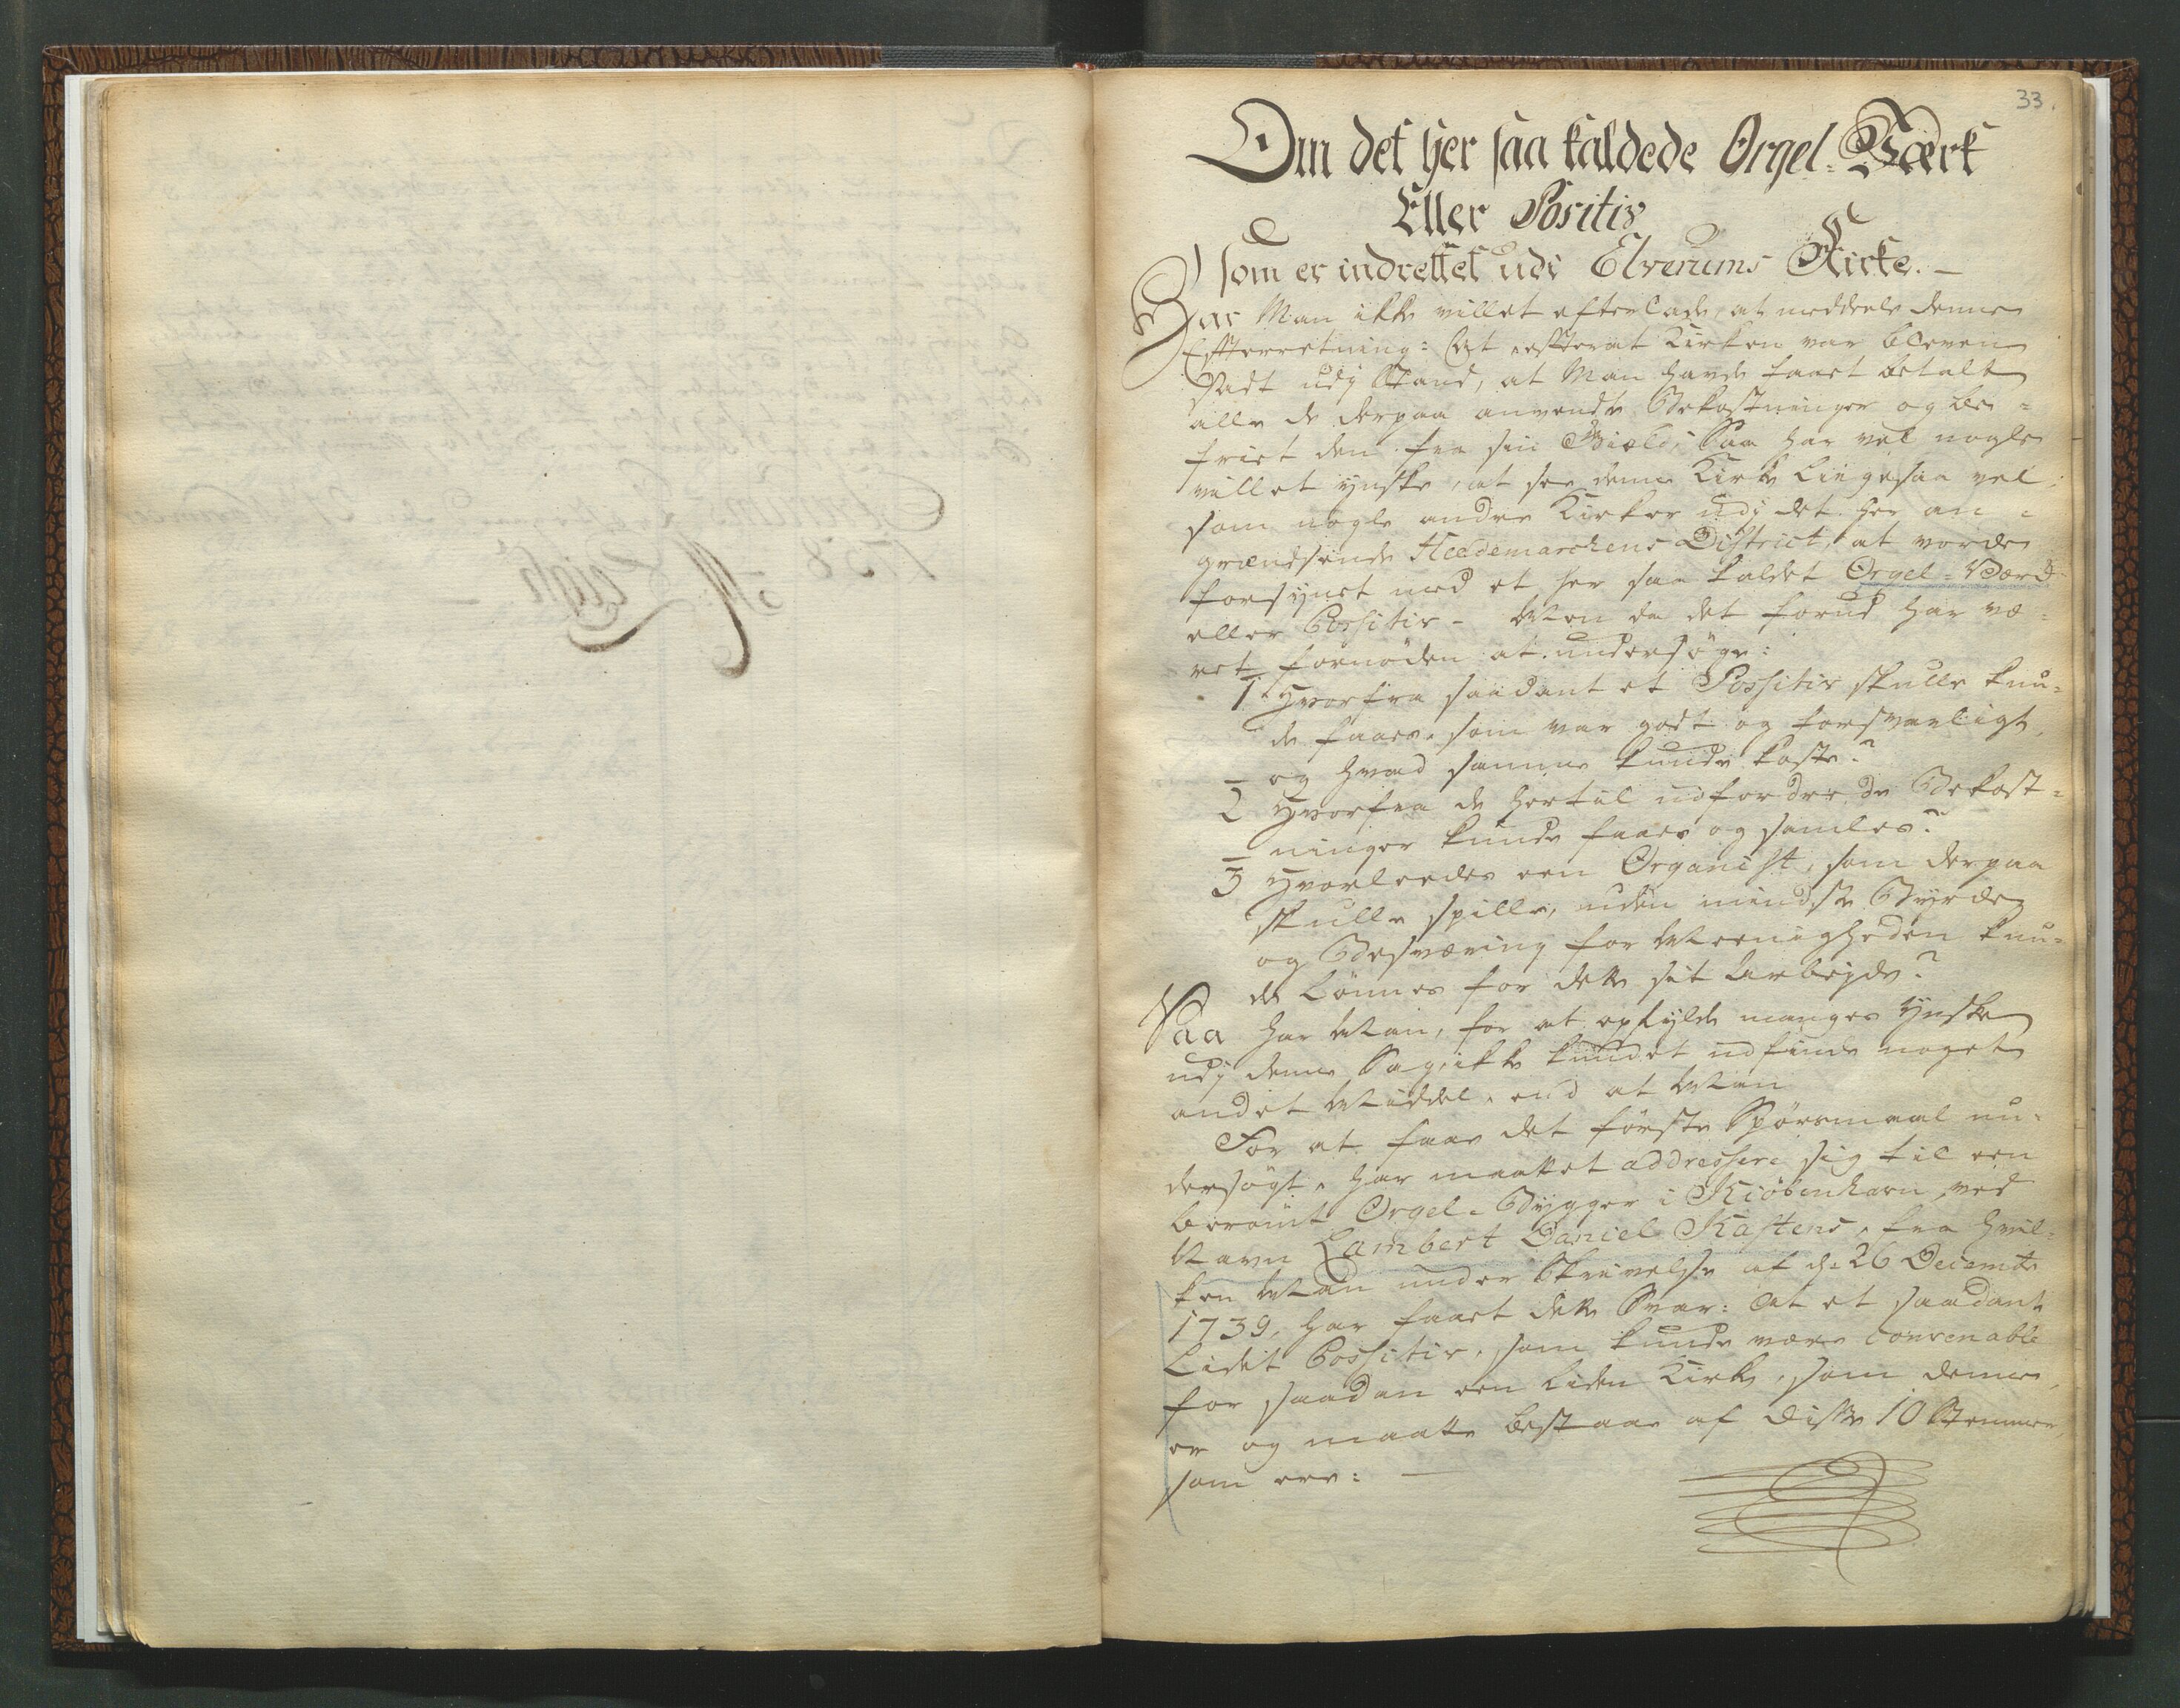 33.
Om det her saa kaldede Orgel-Værk
Eller Positiv
som er indrettet udi Elverums Kirke. —
Har Man ikke villet efterlade, at meddeele denne
Efterretning: At efterat Kirken var bleven
sadt udj Stand, at Man havde faaet betalt
alle de derpaa anvendte Bekostninger og be-
friet den fra sin Giæld, Saa har vel nogle
villet ynske, at see denne Kirke liigesaa vel
som nogle andre Kirker udj det her an-
grændsende Heedemarchens District, at vorde
forsynet med et her saa kaldet Orgel-Værck
eller Possitiv - Men da det forud har væ-
ret fornøden at undersøge:
1 Hvorfra saadant et Possitiv skulle kun-
de faaes, som var godt og forsvarligt,
og hvad samme kunde koste?
2 Hvorfra de hertil udfordrede Bekost-
ninger kunde faaes og samles?
3 Hvorleedes een Organist, som derpaa
skulle spille, uden mindste Byrde
og Besværing for Meenigheden kun-
de lønnes for dette sit Arbejde?
Saa har Man, for at opfylde manges ynske
udj denne Sag, ikke kundet udfinde noget
andet Middel, end at Man
For at faae det første Spørsmaal un-
dersøgt, har maattet addressere sig til een
berømt Orgel-Bygger i Kiøbenhavn, ved
Navn Lambert Daniel Kastens, fra hvil-
ken Man under Skrivelse af d. 26 Decembr
1739, har faaet dette Svar: At et saadant
lidet Possitiv, som kunde være convenable
for saadan een liden Kirke, som denne
er og maatte bestaae af disse 10 Stemmer,
som ere: —